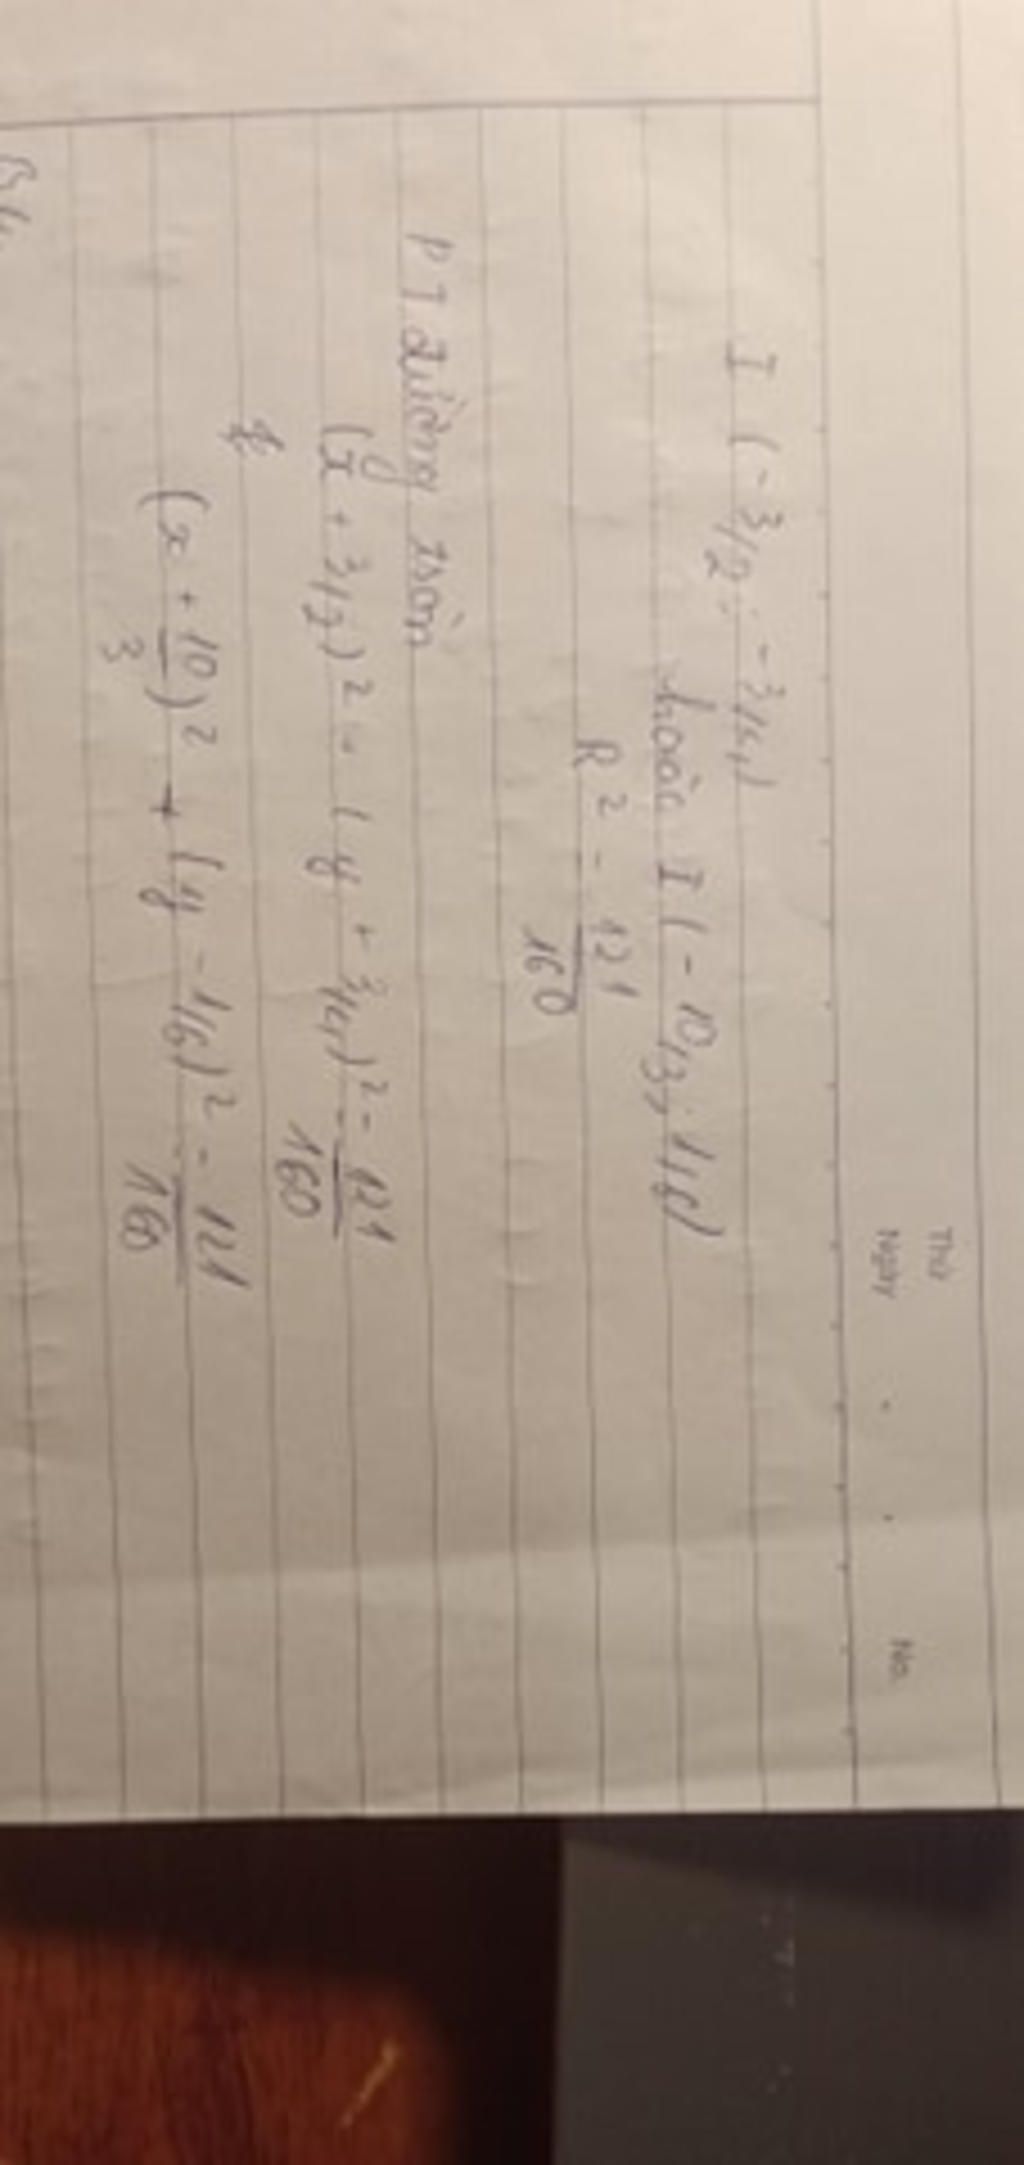 Thứ
Ngày No.
I (-3/2; -3/4)
hoặc I (-10/3; 1/6)
R² = 121/160
PT đường tròn
(x + 3/2)² - (y + 3/4)² = 121/160
(x + 10/3)² + (y - 1/6)² = 121/160